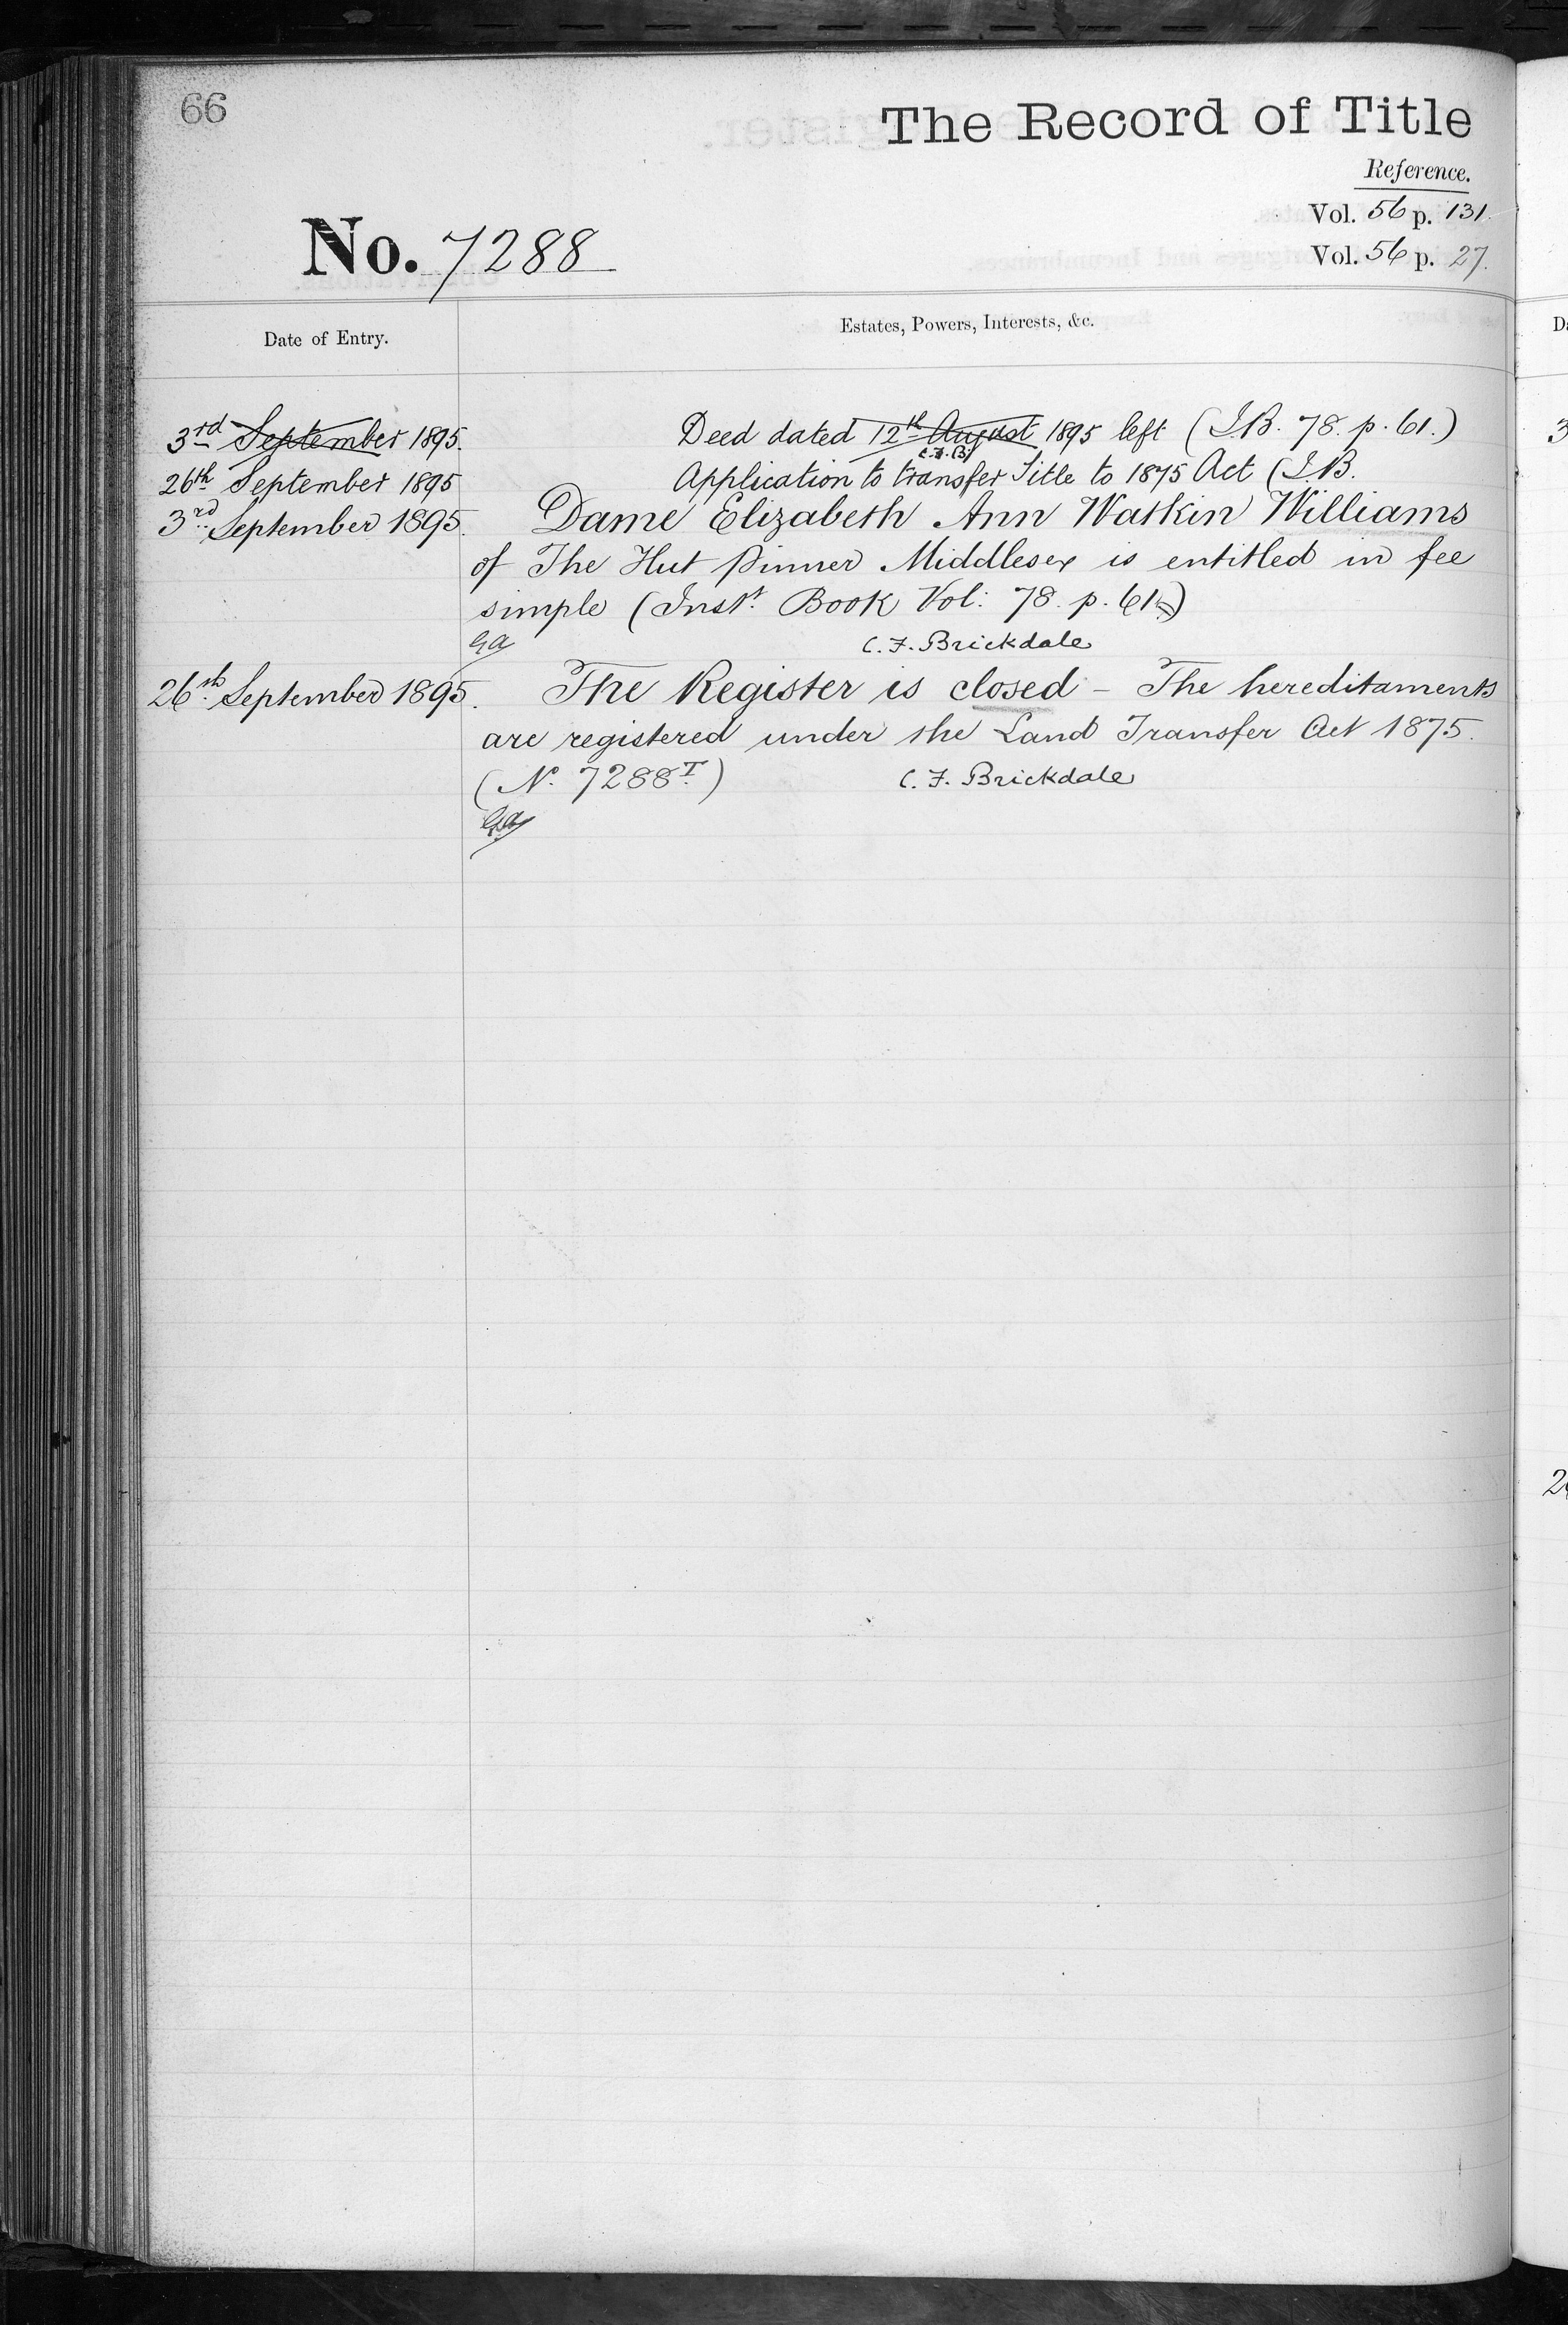 66
The Record of Title
Reference.
Vol. 56 p. 131.
No. 7288
Vol. 56 p. 27.
Date of Entry.
Estates, Powers, Interests, &c.
3rd September 1895. Deed dated 12th August 1895 left (I.B. 78. p. 61.)
C.F.B.
26th September 1895 Application to transfer Title to 1875 Act (I.B.
3rd September 1895. Dame Elizabeth Ann Watkin Williams
of The Hut Pinner Middlesex is entitled in fee
simple (Inst. Book Vol: 78. p. 61.)
C. F. Brickdale
26th September 1895. The Register is closed – The hereditaments
are registered under the Land Transfer Act 1875.
(No. 7288T) C. F. Brickdale